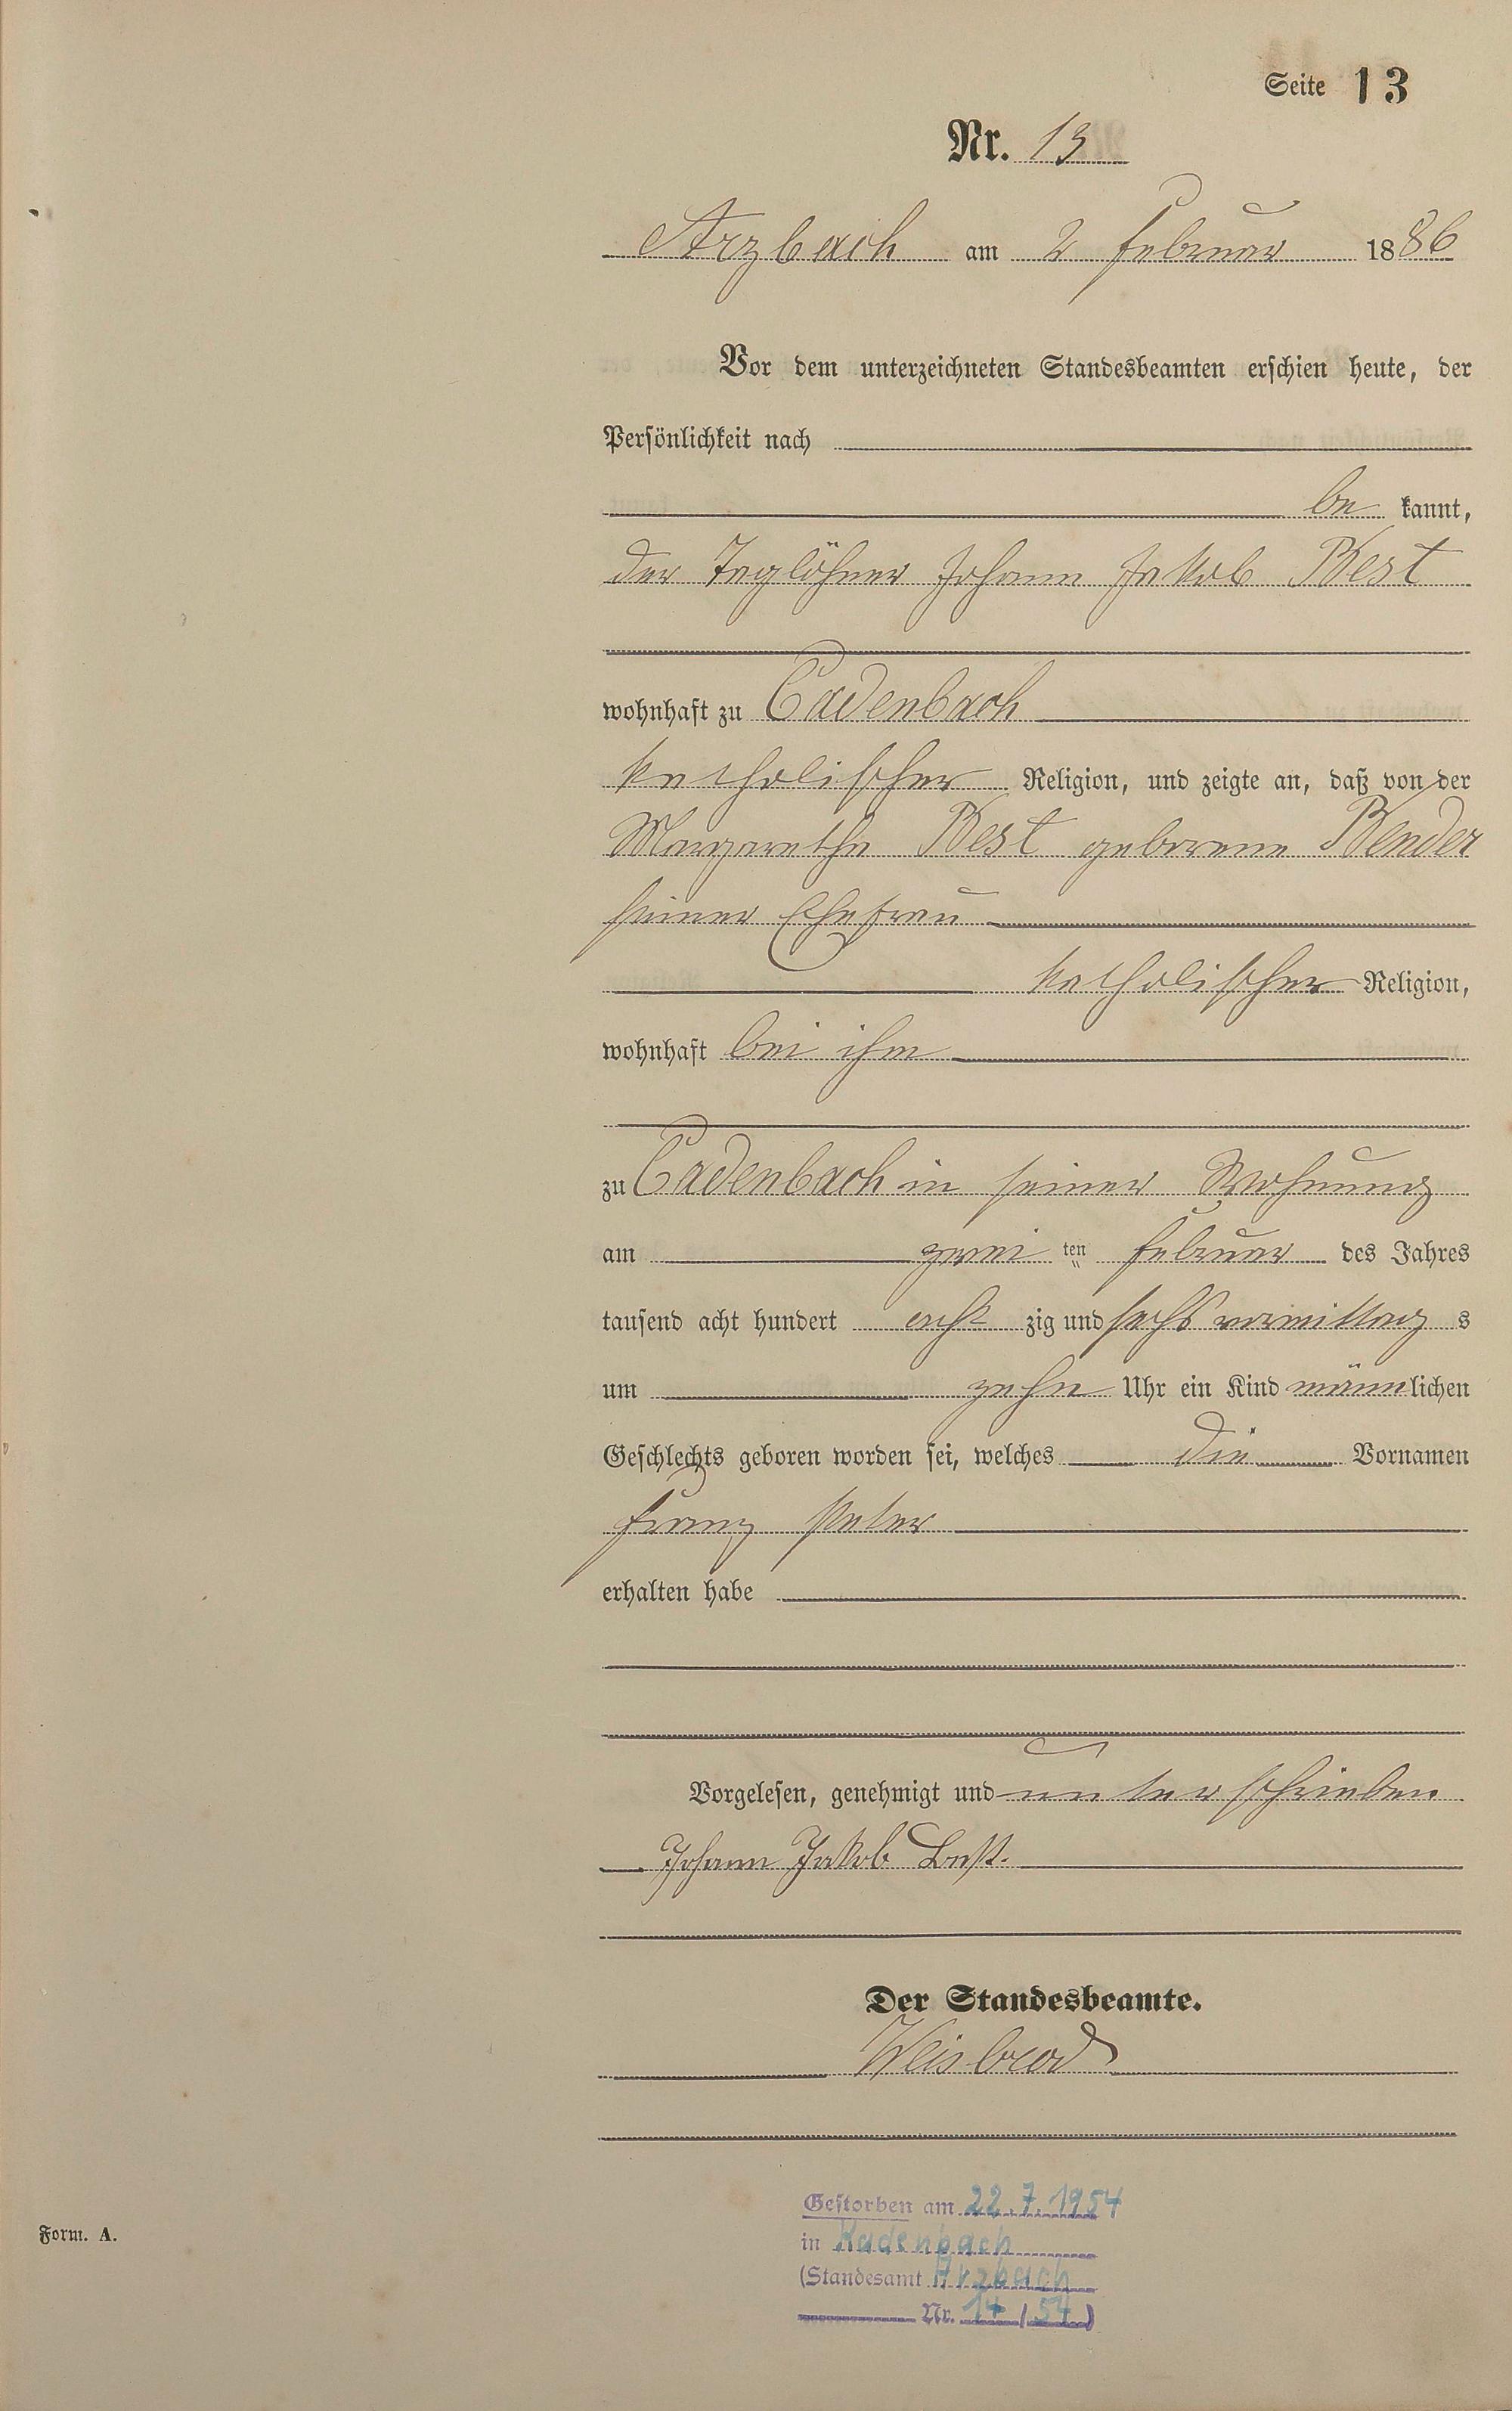 Seite 13
Nr. 13
Arzbach am 2 Februar 1886
Vor dem unterzeichneten Standesbeamten erschien heute, der
Persönlichkeit nach
be kannt,
der Taglöhner Johann Jakob Best
wohnhaft zu Cadenbach
katholischer Religion, und zeigte an, daß von der
Margaretha Best geborene Bender
seiner Ehefrau
katholischer Religion,
wohnhaft bei ihm
zu Cadenbach in seiner Wohnung
am zwei ten Februar des Jahres
tausend acht hundert acht zig und sechs vormittag s
um zehn Uhr ein Kind männlichen
Geschlechts geboren worden sei, welches die Vornamen
Franz Peter
erhalten habe
Vorgelesen, genehmigt und unterschrieben
Johann Jakob Best.
Der Standesbeamte.
Weisbrod
Gestorben am 22.7.1954
in Kadenbach
Form. A.
(Standesamt Arzbach
Nr. 14/54)